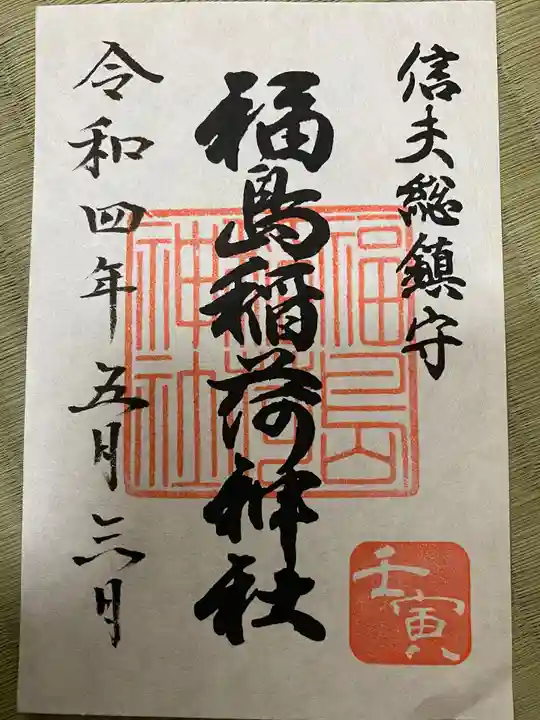 信夫総鎮守
福島稲荷神社
令和四年五月六日
福島
稲荷
神社
壬寅